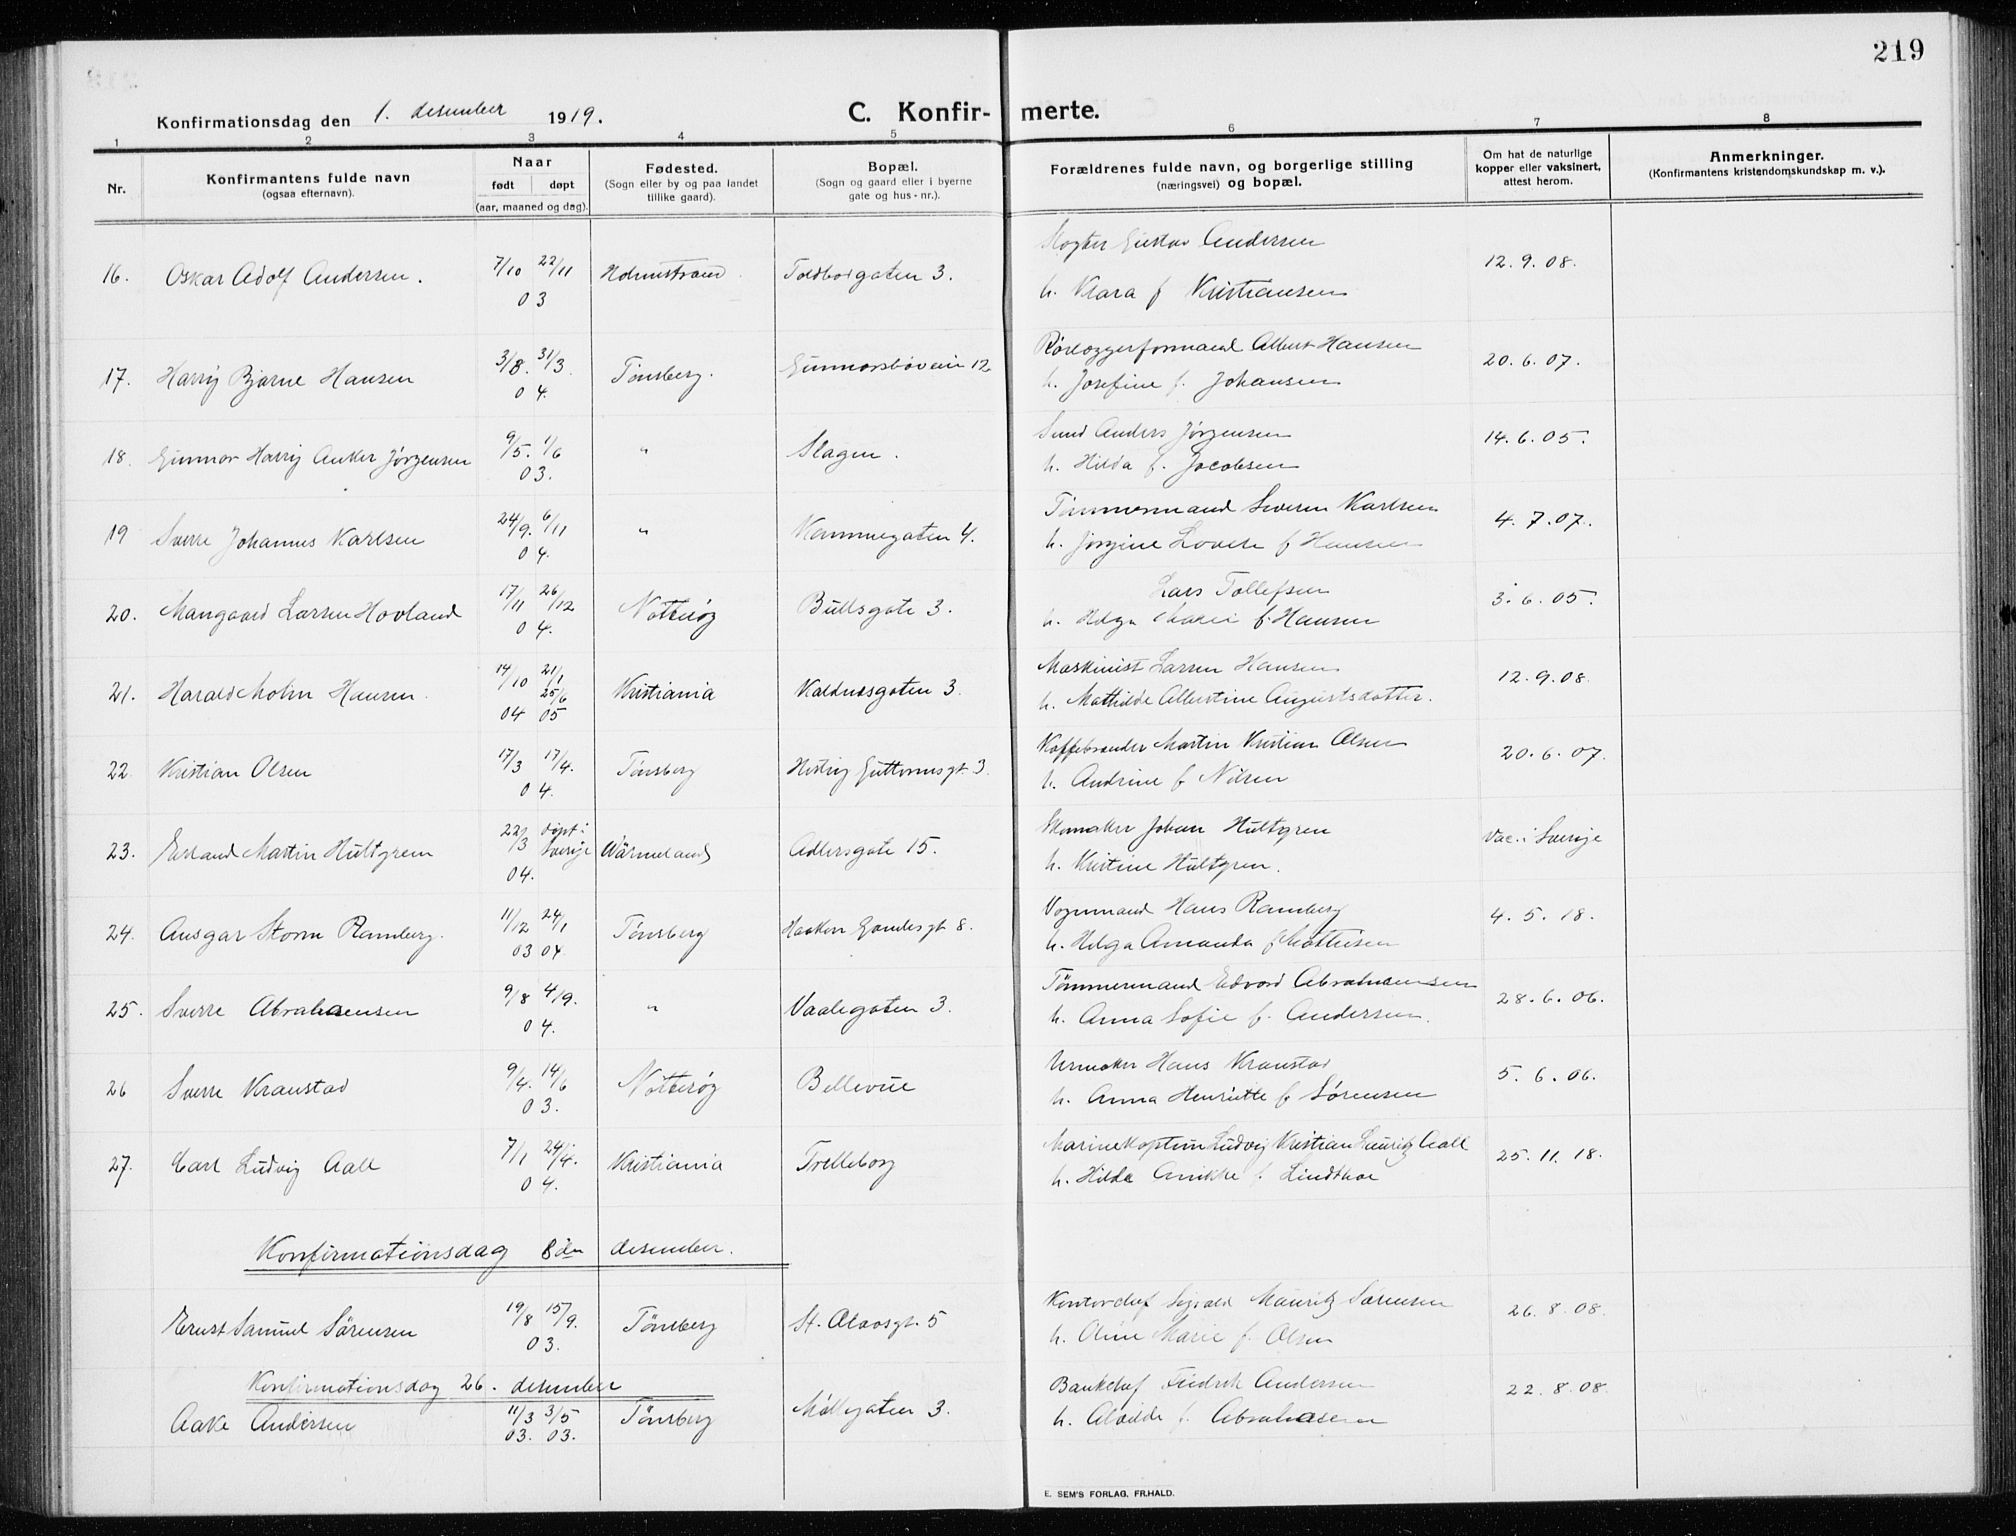 219
Konfirmationsdag den 1. desember 1919. C. Konfir- merte.
1 2 3 4 5 6 7 8
Nr. Konfirmantens fulde navn (ogsaa efternavn). Naar født døpt (aar, maaned og dag). Fødested. (Sogn eller by og paa landet tillike gaard). Bopæl. (Sogn og gaard eller i byerne gate og hus-nr.). Forældrenes fulde navn, og borgerlige stilling (næringsvei) og bopæl. Om hat de naturlige kopper eller vaksinert, attest herom. Anmerkninger. (Konfirmantens kristendomskundskap m. v.).
Slagter Gustav Andersen
16. Oskar Adolf Andersen. 7/10 22/11 Holmestrand Toldbodgaten 3. 12.9.08.
03 h. Klara f Kristiansen
Rørlæggerformand Albert Hansen
17. Harry Bjarne Hansen 3/8. 31/3. Tønsberg. Gunnarsbøveien 12 20.6.07.
04. h. Josefine f. Johansen
Smed Anders Jørgensen
18. Gunnar Harry Anker Jørgensen 9/5. 1/6 " Slagen. 14.6.05.
03. h. Hilda f. Jacobsen
Tømmermand Severin Karlsen
19 Sverre Johannes Karlsen 24/9. 6/11 " Kammegaten 4. 4.7.07.
04. h. Jørgine Lovise f Hansen
Lars Tollefsen
20. Mangaard Larsen Hovland 17/11 26/12 Nøtterøy Bullsgate 3. 3.6.05.
04. h. Helga Marie f. Hansen
Maskinist Larsen Hansen
21. Harald Molin Hansen. 14/10 21/1 25/6 Kristiania Kaldnesgaten 3. 12.9.08.
04 05 h. Mathilde Albertine Augustsdatter.
Kaffebrænder Martin Kristian Olsen
22. Kristian Olsen 17/3 17/4. Tønsberg Hertug Guttormsgt. 3. 20.6.07.
04. h. Andrine f. Nilsen
Skomaker Johan Hultgren
23. Erland Martin Hultgren 22/3 døpt i Sverige Wärmeland Adlersgate 15. Vac. i Sverige
04. h. Kristine Hultgren.
Vognmand Hans Ramberg
24. Ansgar Storm Ramberg. 11/12 24/1 Tønsberg Haakon Gamlesgt 8. 4.5.18.
03 04 h. Helga Amanda f Mathisen
Tømmermand Edvard Abrahamsen
25. Sverre Abrahamsen 9/8 4/9. " Vaalegaten 3. 28.6.06.
04. h. Anna Sofie f. Andersen.
Urmaker Hans Kranstad
26 Sverre Kranstad 9/4. 14/6 Nøtterøy Bellevue 5.6.06.
03. h. Anna Henriette f. Sørensen
Marinekaptein Ludvig Kristian Lauritz Aall
27. Carl Ludvig Aall 7/1 24/4. Kristiania Trelleborg 25.11.18.
04. h. Hilda Anikke f. Lindthoe
Konfirmationsdag 8de desember.
Kontorchef Sigvald Mauritz Sørensen
Ernst Samuel Sørensen 19/8 15/9. Tønsberg St. Olavsgt. 5 26.8.08.
03. h. Oline Marie f. Olsen
Konfirmationsdag 26. desember Bankchef Fredrik Andersen
Aake Andersen 11/3 3/5 Tønsberg Møllegaten 3. 22.8.08.
03. 03. h. Alvilde f. Abrahamsen
E. SEM'S FORLAG, FR.HALD.